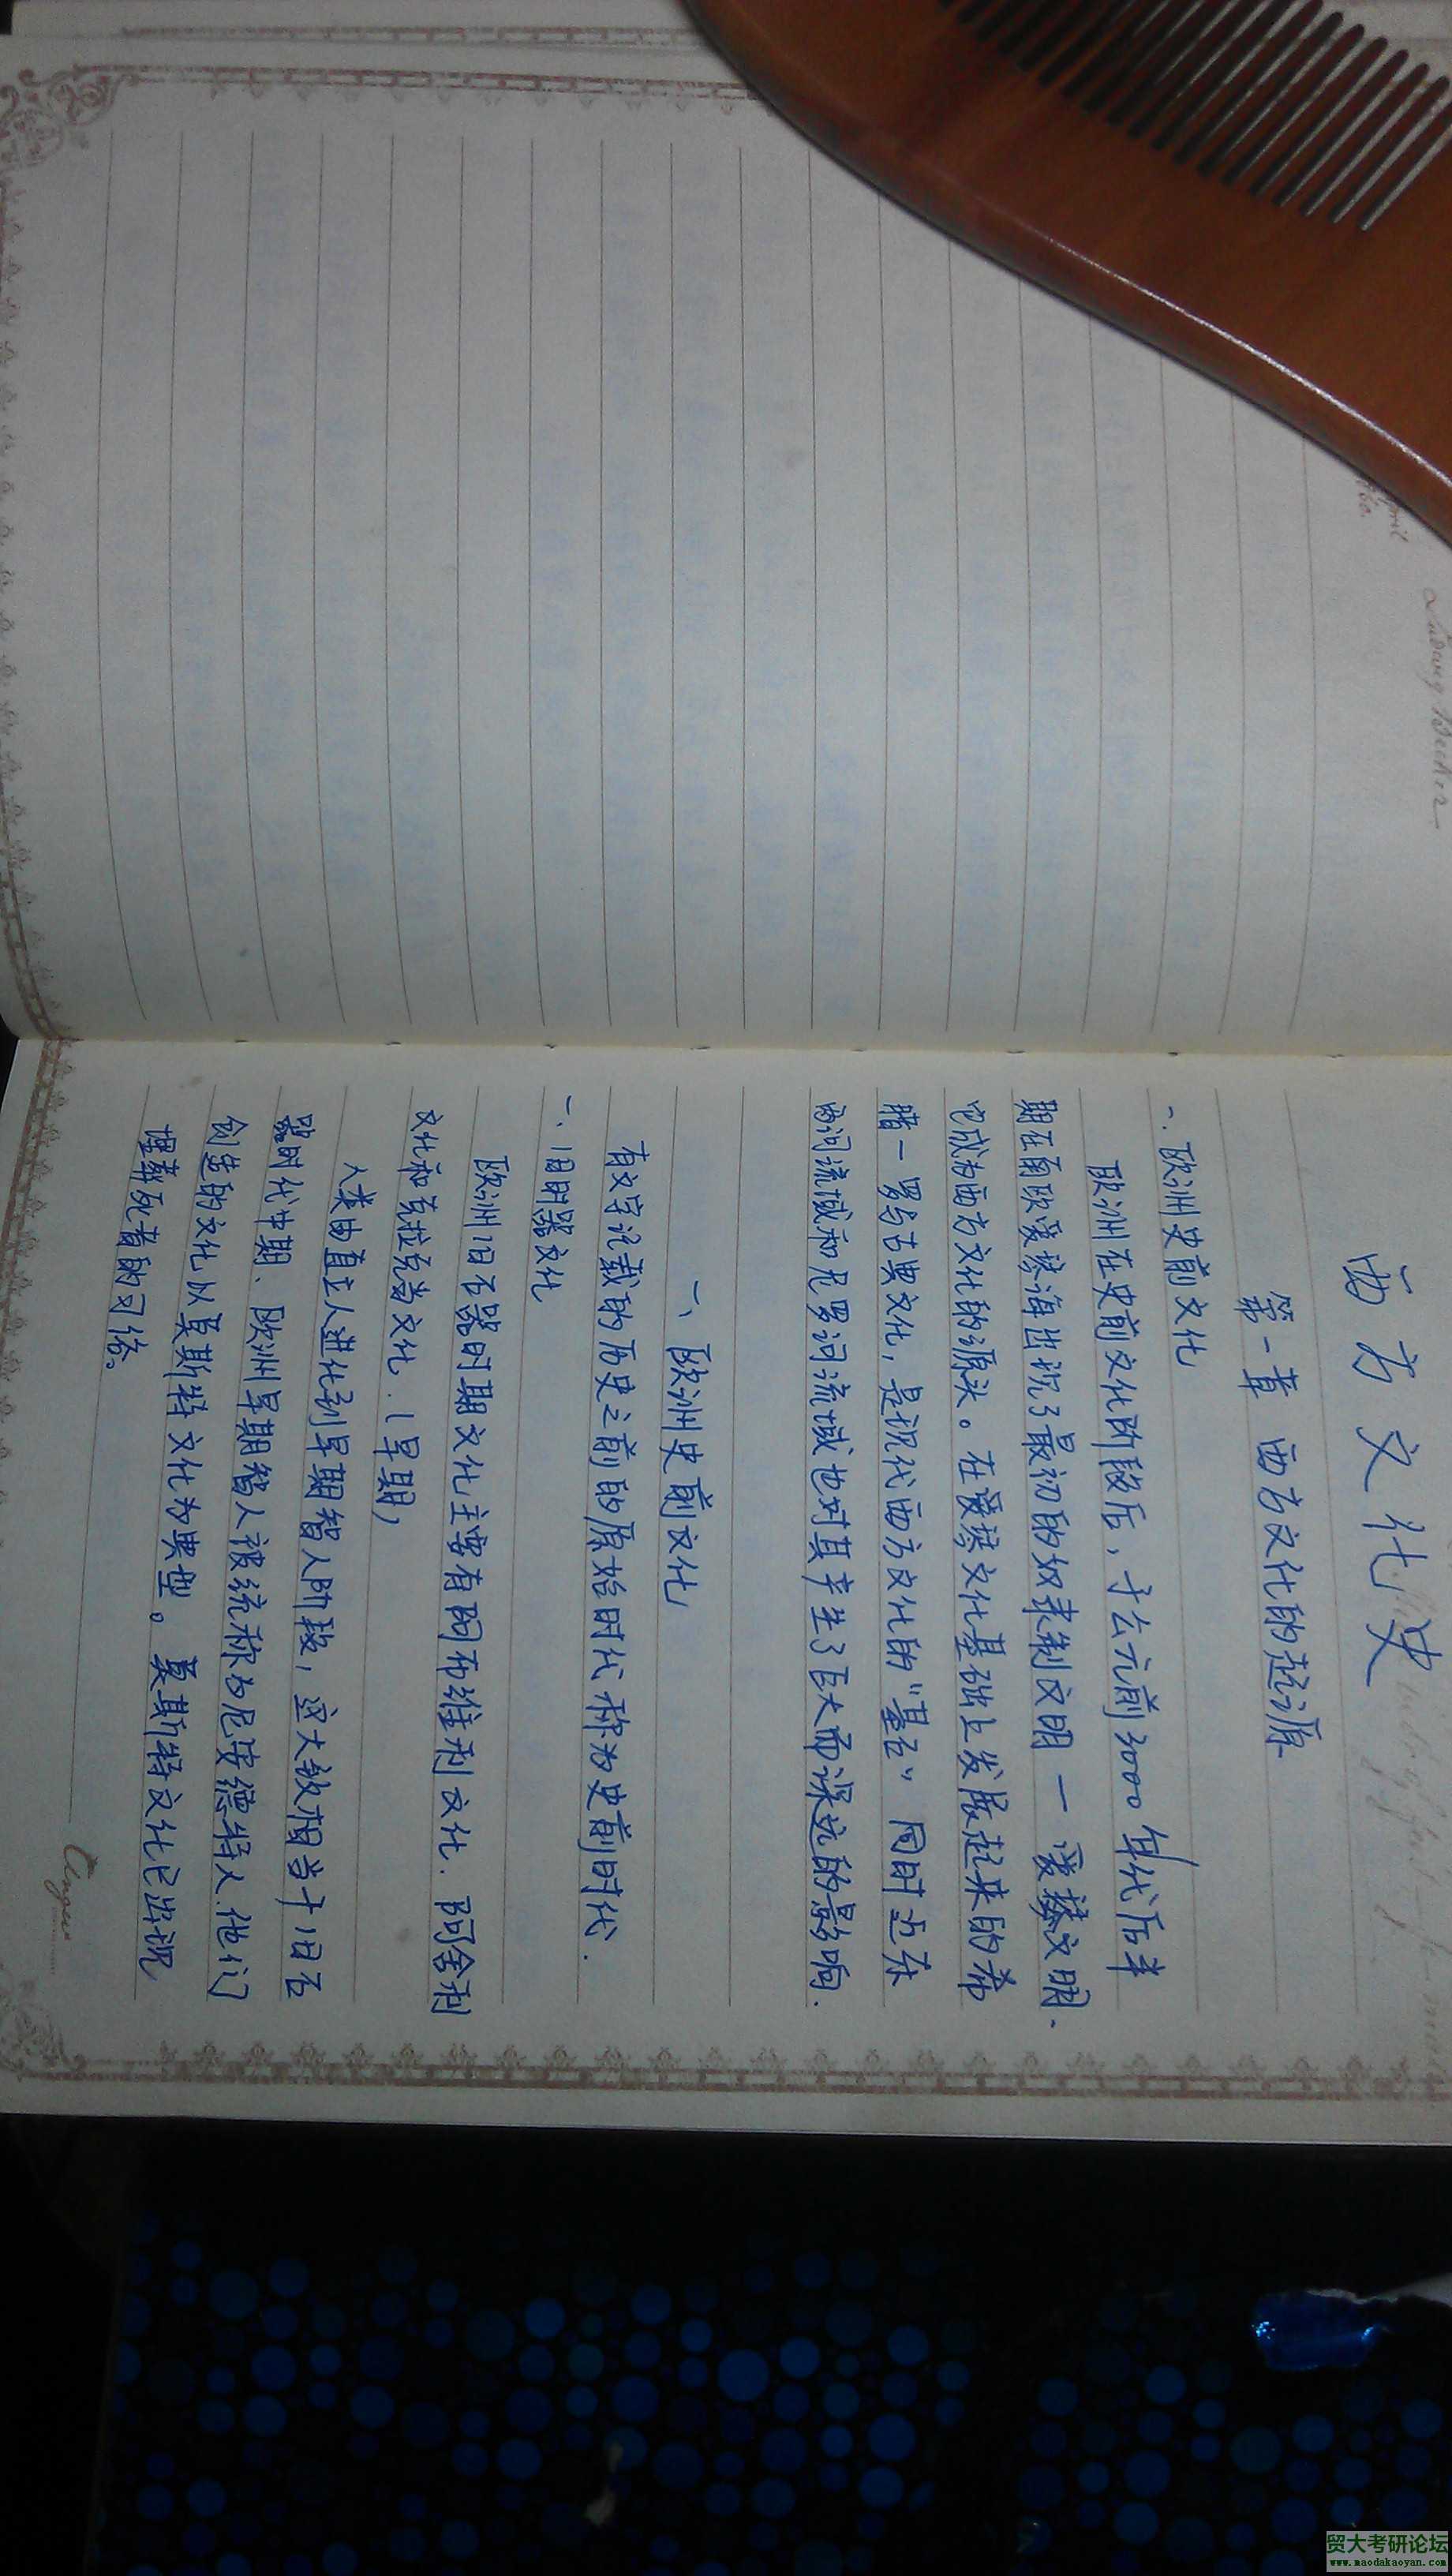 西方文化史
第一章 西方文化的起源
一、欧洲史前文化
欧洲在史前文化阶段后，于公元前3000年代后半
期在南欧爱琴海出现了最初的奴隶制文明一爱琴文明.
它成为西方文化的源头。在爱琴文化基础上发展起来的希
腊一罗马古典文化，是现代西方文化的“基石”同时近东
两河流域和尼罗河流域也对其产生了巨大而深远的影响.
一、欧洲史前文化
有文字记载的历史之前的原始时代称为史前时代.
一、旧时器文化
欧洲旧石器时期文化主要有阿布维利文化.阿舍利
文化和克拉克当文化.(早期)
人类由直立人进化到早期智人阶段，这大致相当于旧石
器时代中期、欧洲早期智人被统称为尼安德特人.他们
创造的文化以莫斯特文化为典型。莫斯特文化已出现
埋葬死者的习俗。
Angen
Ludwig
贸大考研论坛
www.maodakaoyan.com